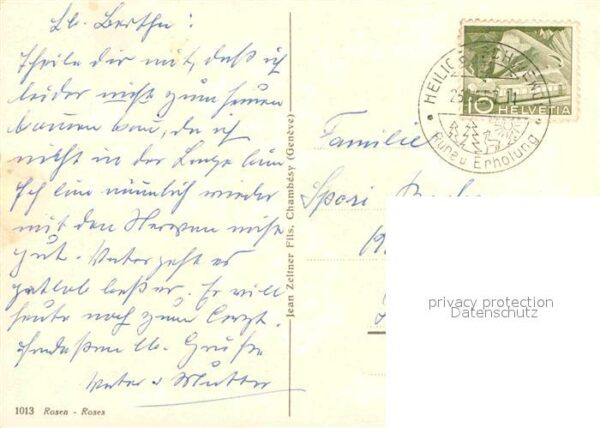 Lb. Bertha:
theile dir mit, daß ich
leider nicht zum heuen
kommen kann, da ich
nicht in der Lage bin
Ich bin nämlich wieder
mit den Nerven nicht
gut. Vater geht es
gottlob besser. Er will
heute noch zum Arzt.
Indessen lb. Grüße
Vater u Mutter
1013 Rosen - Roses
Jean Zeltner Fils, Chambésy (Genève)
10 HELVETIA
HEILIGENSCHWENDI
Ruhe u Erholung
Familie
Sposi
privacy protection
Datenschutz